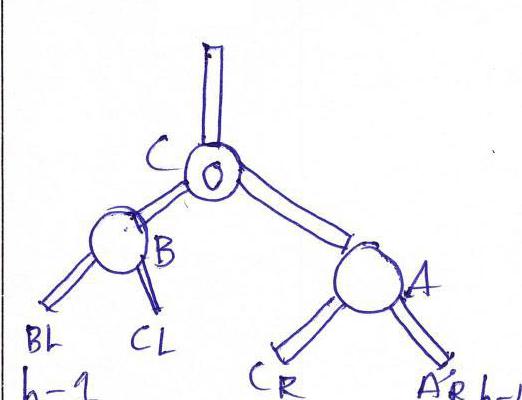 C
O
B
A
BL
CL
CR
AR
h-1
h-1